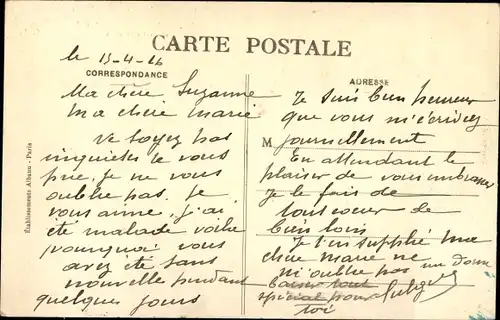 CARTE POSTALE
CORRESPONDANCE
ADRESSE
Établissements Album - Paris
le 13-4-26
Ma chère Suzanne
ma chère marie
ne soyez pas
inquietes je vous
prie, je ne vous
oublie pas. Je
vous aime, j'ai
été malade voila
pourquoi vous
avez été sans
nouvelle pendant
quelques jours
Je suis bien heureux
que vous m'écriviez
M
journellement
En attendant le
plaisir de vous embrasser
Je le fais de
tout coeur de
bien loin
Je t'en supplie ma
chère marie ne
m'oublie pas un
baiser tout
spécial pour
toi